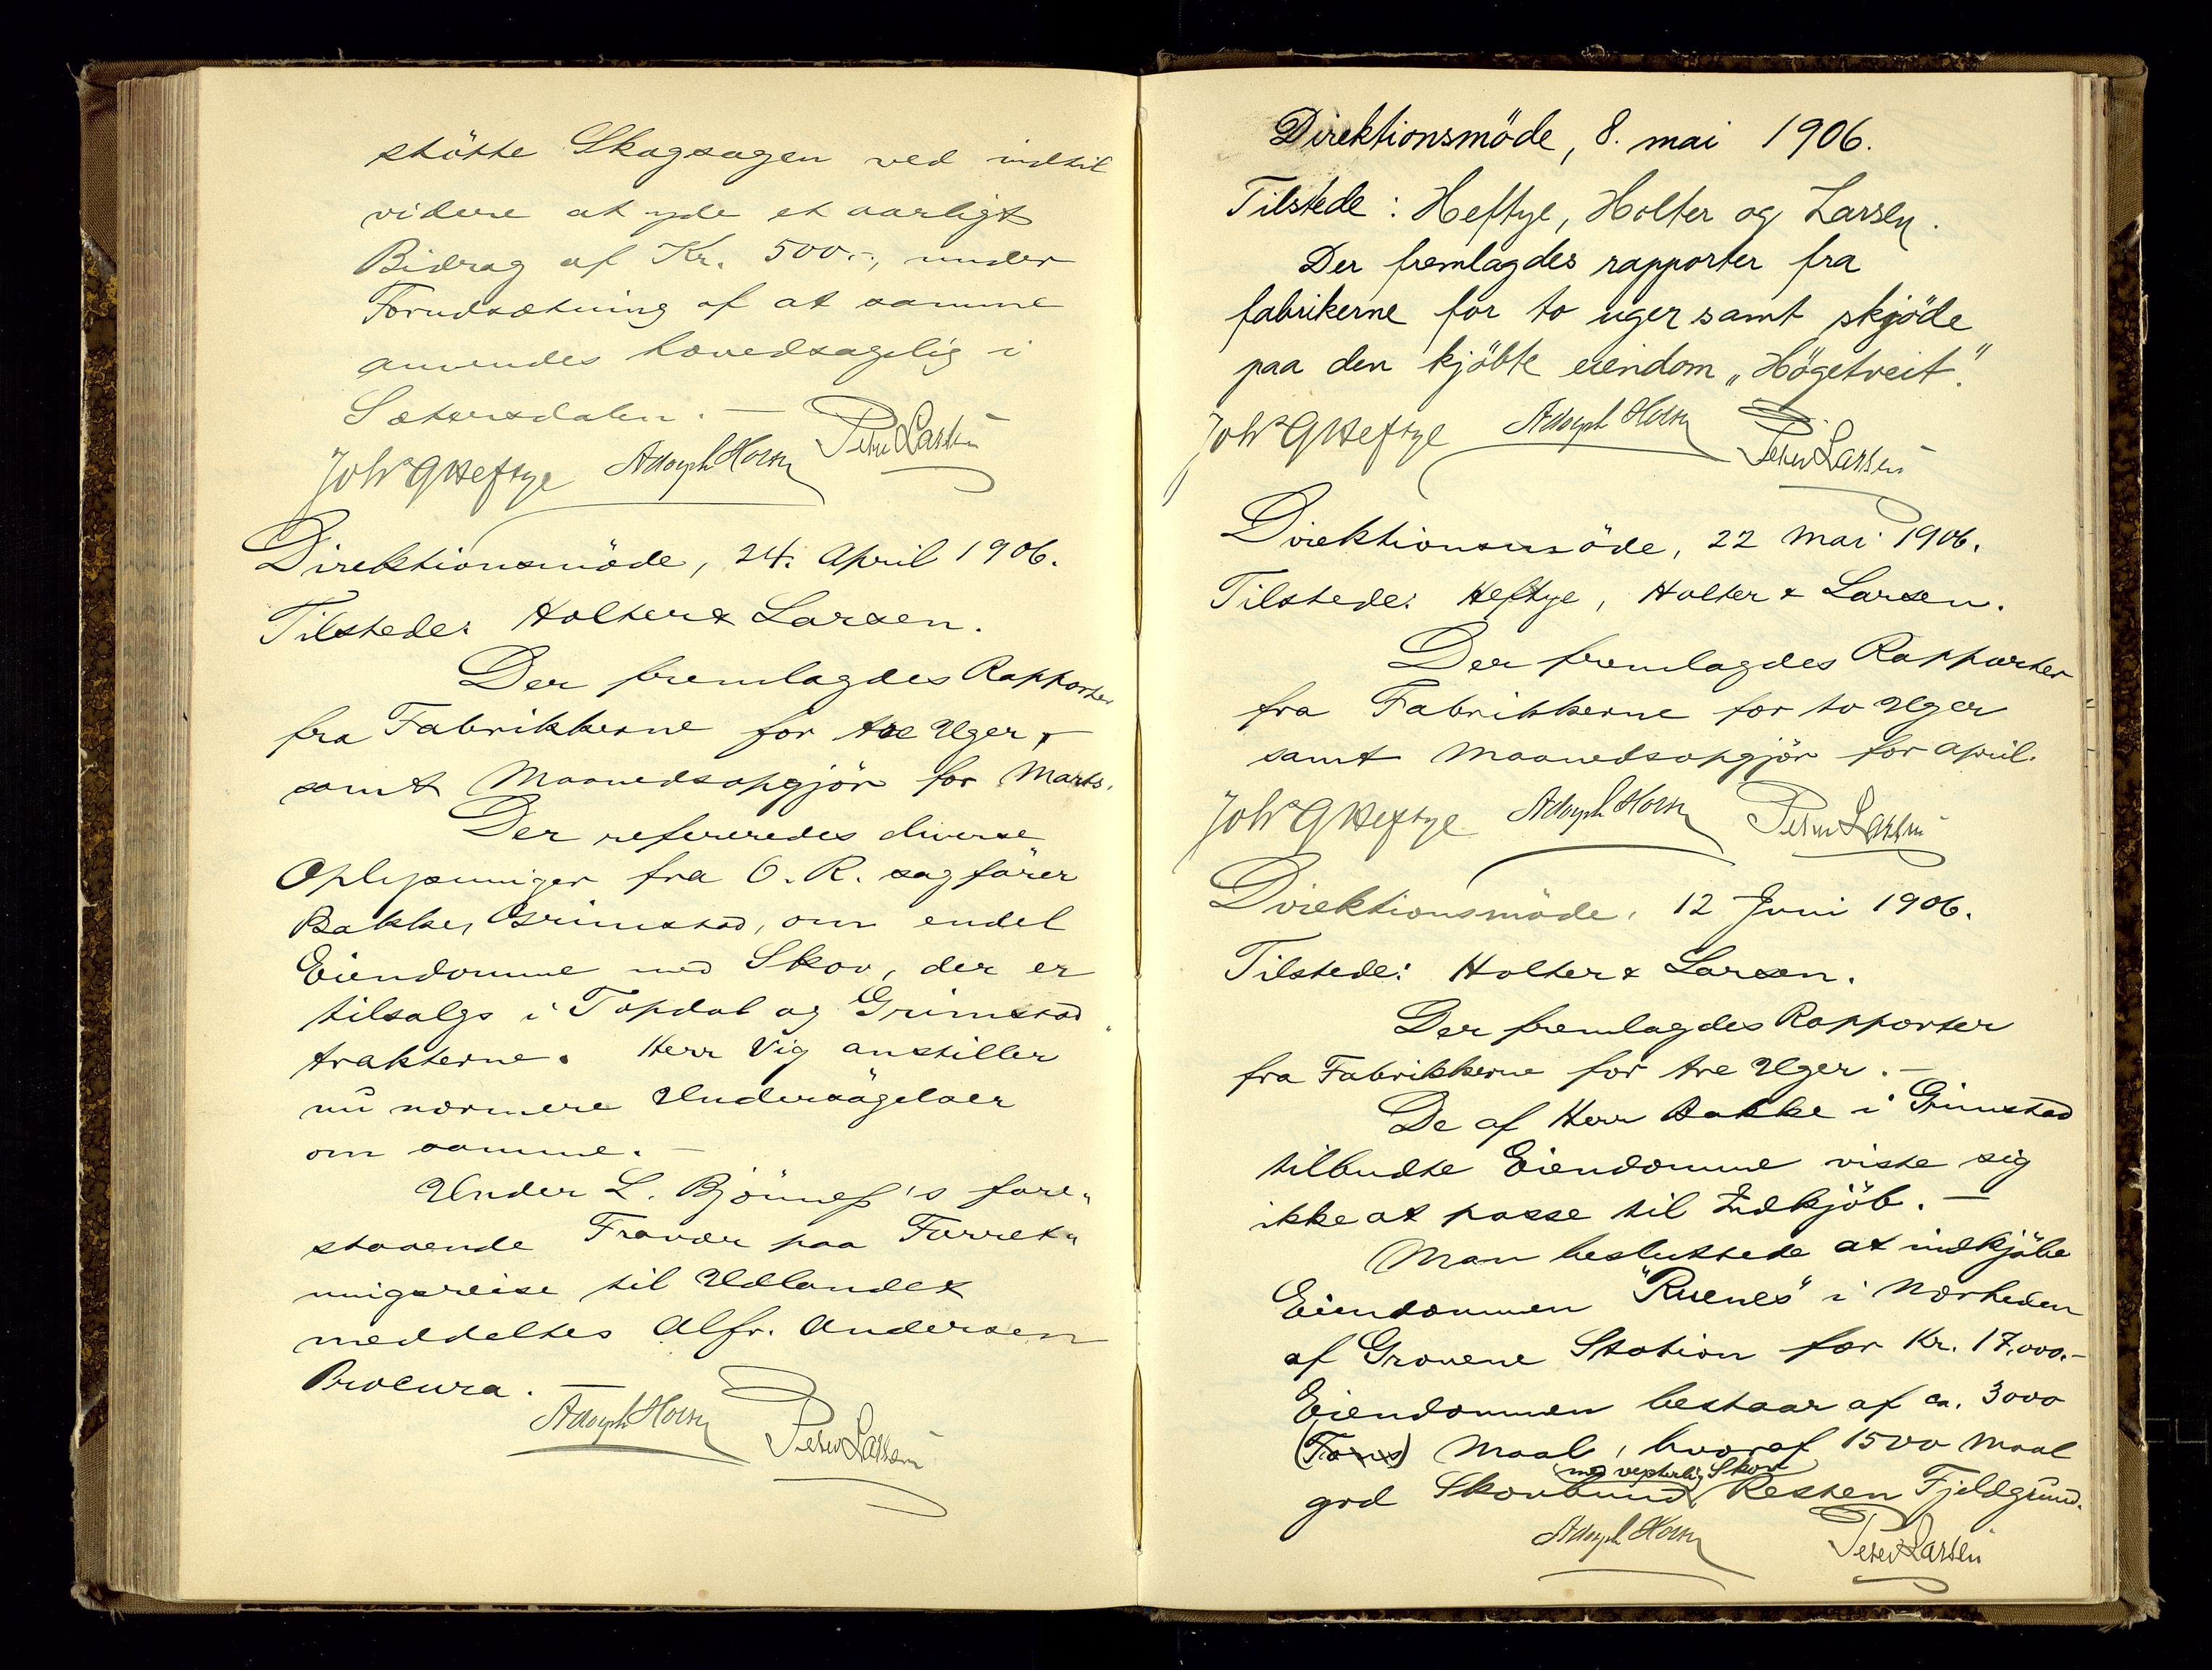 stötte Skogsagen ved indtil
videre at yde et aarligt
Bidrag af Kr. 500.-, under
Forudsætning af at samme
anvendes hovedsagelig i
Sætersdalen. —
Joh's G Heftye Adolph Holter Peter Larsen
Direktionsmöde, 24. April 1906.
Tilstede: Holter & Larsen.
Der fremlagdes Rapporter
fra Fabrikkerne for tre Uger,
samt Maanedsopgjör for Marts.
Der refereredes diverse
Oplysninger fra O. R. sagförer
Bakke, Grimstad, om endel
Eiendomme med Skov, der er
tilsalgs i Topdal og Grimstad
trakterne. Herr Vig anstiller
nu nærmere Undersögelser
om samme. —
Under L. Bjönneß's fore-
staaende Fravær paa Forret-
ningsreise til Udlandet
meddeltes Alfr. Andersen
Procura. —
Adolph Holter Peter Larsen
Direktionsmöde, 8. mai 1906.
Tilstede: Heftye, Holter og Larsen.
Der fremlagdes rapporter fra
fabrikerne for to uger samt skjöde
paa den kjöbte eiendom „Högetveit".
Joh's G Heftye Adolph Holter Peter Larsen
Direktionsmöde, 22 Mai 1906.
Tilstede: Heftye, Holter & Larsen.
Der fremlagdes Rapporter
fra Fabrikkerne for to Uger
samt Maanedsopgjör for April.
Joh's G Heftye Adolph Holter Peter Larsen
Direktionsmöde, 12 Juni 1906.
Tilstede: Holter & Larsen.
Der fremlagdes Rapporter
fra Fabrikkerne for tre Uger. —
De af Herr Bakke i Grimstad
tilbudte Eiendomme viste sig
ikke at passe til Indkjöb. —
Man besluttede at indkjöbe
Eiendommen "Ruenes" i Nærheden
af Grovene Station for Kr. 17.000.-
Eiendommen bestaar af ca. 3000
(Tons) Maal, hvoraf 1500 Maal
med vepterlig Skov
god Skovbund, Resten Fjeldgrund.
Adolph Holter Peter Larsen